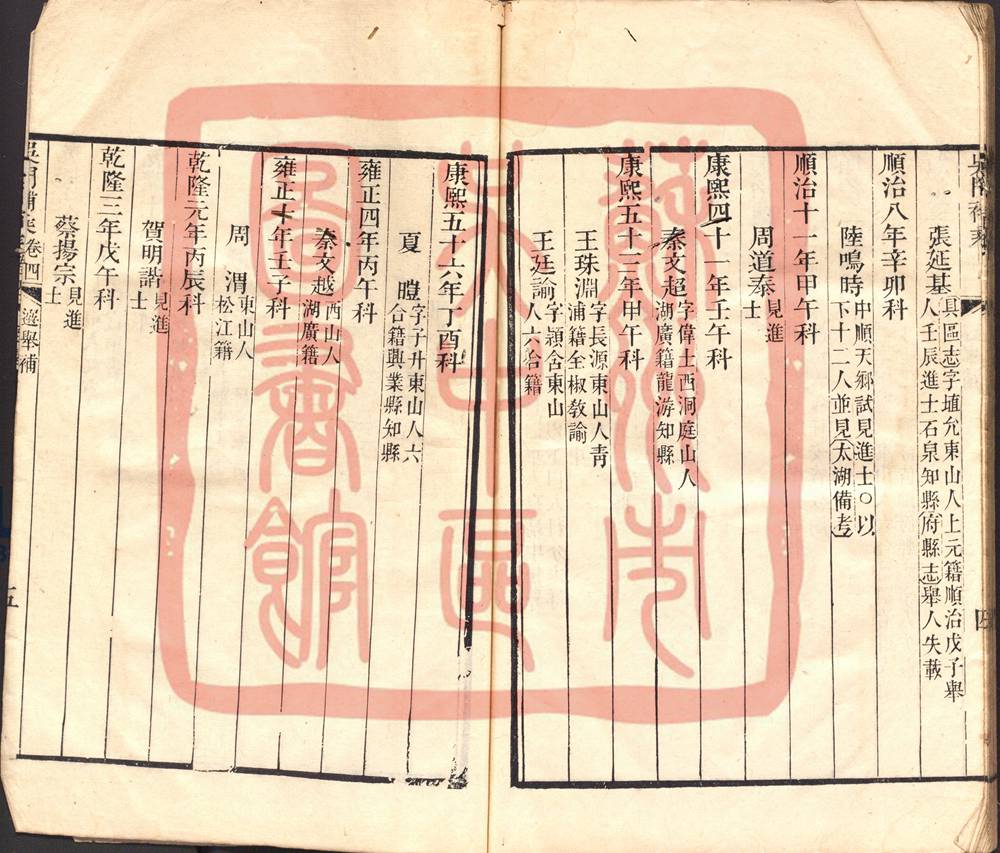 張延基具區志字埴允東山人上元籍順治戊子舉
人壬辰進士石泉知縣府縣志舉人失載
順治八年辛卯科
陸鳴時中順天鄉試見進士○以
下十二人並見太湖備考
順治十一年甲午科
周道泰見進
士
康熙四十一年壬午科
秦文超字偉士西洞庭山人
湖廣籍龍游知縣
康熙五十三年甲午科
王珠淵字長源東山人青
浦籍全椒教諭
王廷諭字穎含東山
人六合籍
康熙五十六年丁酉科
夏曀字子升東山人六
合籍興業縣知縣
雍正四年丙午科
秦文越西山人
湖廣籍
雍正十年壬子科
周渭東山人
松江籍
乾隆元年丙辰科
賀明諧見進
士
乾隆三年戊午科
蔡揚宗見進
士
吳門補乘卷四 選舉補
五
蘇州市
吳中區
圖書館